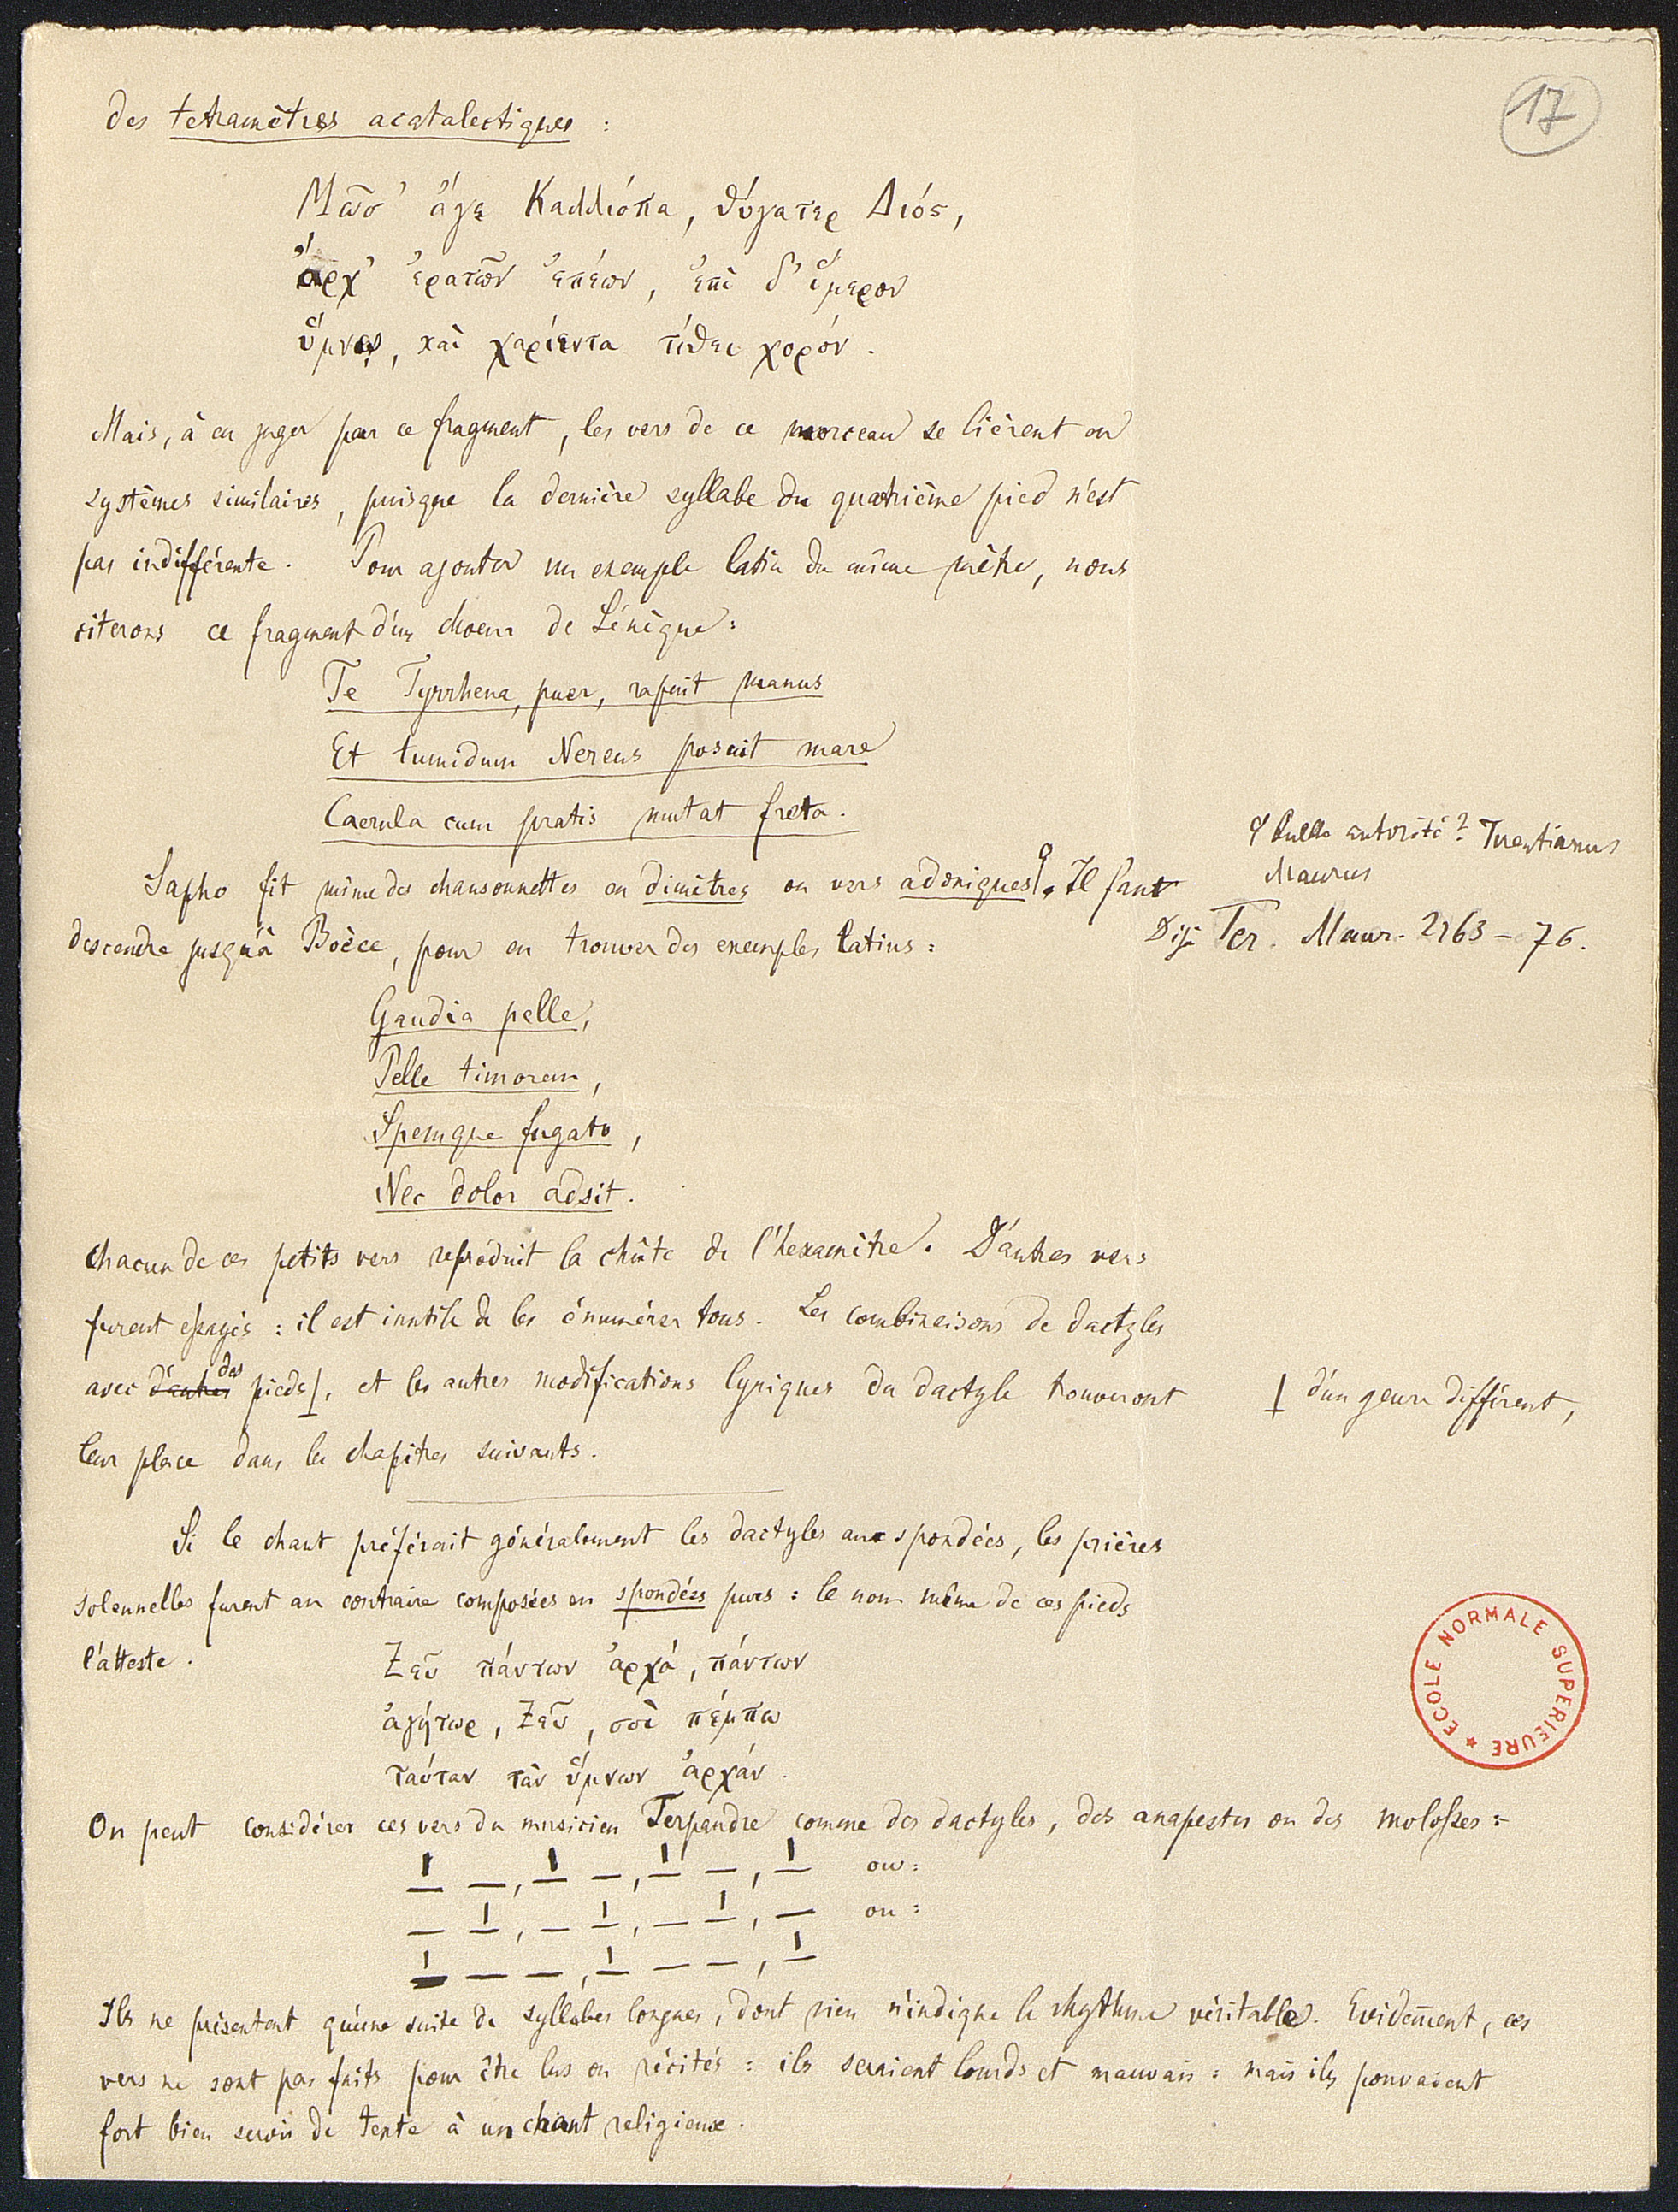 17
des tetramètres acatalectiques :
Μῶσ' ἄγε Καλλιόπα, θύγατερ Διός,
ἄρχ' ἐρατῶν ἐπέων, ἐπὶ δ' ἵμερον
ὕμνῳ, καὶ χαρίεντα τίθει χορόν.
Mais, à en juger par ce fragment, les vers de ce morceau se lièrent en
systèmes similaires, puisque la dernière syllabe du quatrième pied n'est
pas indifférente. Pour ajouter un exemple latin du même mètre, nous
citerons ce fragment d'un choeur de Sénèque :
Te Tyrrhena, puer, rapuit manus
Et tumidum Nereus posuit mare
Caerula cum pratis mutat freta.
Sapho fit même des chansonnettes en dimètres ou vers adoniques. Il faut
Quelle autorité ? Terentianus
Maurus
descendre jusqu'à Boèce, pour en trouver des exemples latins :
Ter. Maur. 2163-76.
Gaudia pelle,
Pelle timorem,
Spemque fugato,
Nec dolor adsit.
Chacun de ces petits vers reproduit la chûte de l'hexamètre. D'autres vers
furent essayés : il est inutile de les énumérer tous. Les combinaisons de dactyles
avec d'autres des pieds, et les autres modifications lyriques du dactyle trouveront
d'un genre différent,
leur place dans les chapitres suivants.
Si le chant préférait généralement les dactyles aux spondées, les prières
solennelles furent au contraire composées en spondées purs : le nom même de ces pieds
l'atteste.
Ζεῦ πάντων ἀρχά, πάντων
ἀγήτωρ, Ζεῦ, σοὶ πέμπω
ταύταν τὰν ὕμνων ἀρχάν.
ECOLE NORMALE SUPERIEURE
On peut considérer ces vers du musicien Terpandre comme des dactyles, des anapestes ou des molosses :
ou :
ou :
Ils ne présentent qu'une suite de syllabes longues, dont rien n'indique le rhythme véritable. Evidem̄ent, ces
vers ne sont pas faits pour être lus ou récités : ils seraient lourds et mauvais : mais ils pouvaient
fort bien servir de texte à un chant religieux.